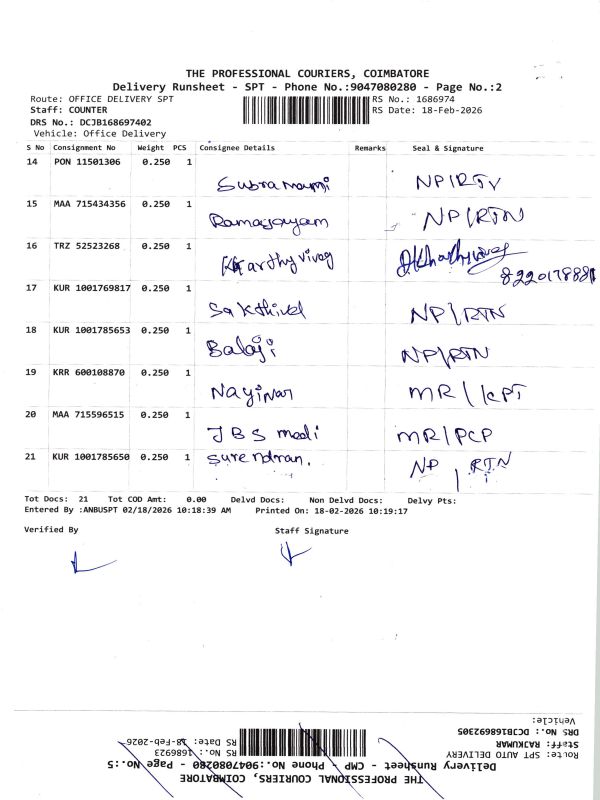 THE PROFESSIONAL COURIERS, COIMBATORE
Delivery Runsheet - SPT - Phone No.:9047080280 - Page No.:2
Route: OFFICE DELIVERY SPT RS No.: 1686974
Staff: COUNTER RS Date: 18-Feb-2026
DRS No.: DCJB168697402
Vehicle: Office Delivery
S No Consignment No Weight PCS Consignee Details Remarks Seal & Signature
14 PON 11501306 0.250 1
NP|RTN
15 MAA 715434356 0.250 1
Ramajayam NP|RTN
16 TRZ 52523268 0.250 1
8220178881
17 KUR 1001769817 0.250 1
Sakthivel NP|RTN
18 KUR 1001785653 0.250 1
Balaji NP|RTN
19 KRR 600108870 0.250 1
Nayinar MR|KPT
20 MAA 715596515 0.250 1
JBS medi MR|PCP
21 KUR 1001785650 0.250 1 Surendran. NP | RTN
Tot Docs: 21 Tot COD Amt: 0.00 Delvd Docs: Non Delvd Docs: Delvy Pts:
Entered By :ANBUSPT 02/18/2026 10:18:39 AM Printed On: 18-02-2026 10:19:17
Verified By Staff Signature
THE PROFESSIONAL COURIERS, COIMBATORE
Delivery Runsheet - CMP - Phone No.:9047080280 - Page No.:5
Route: SPT AUTO DELIVERY RS No.: 1686923
Staff: RAJKUMAR RS Date: 18-Feb-2026
DRS No.: DCJB168692305
Vehicle: